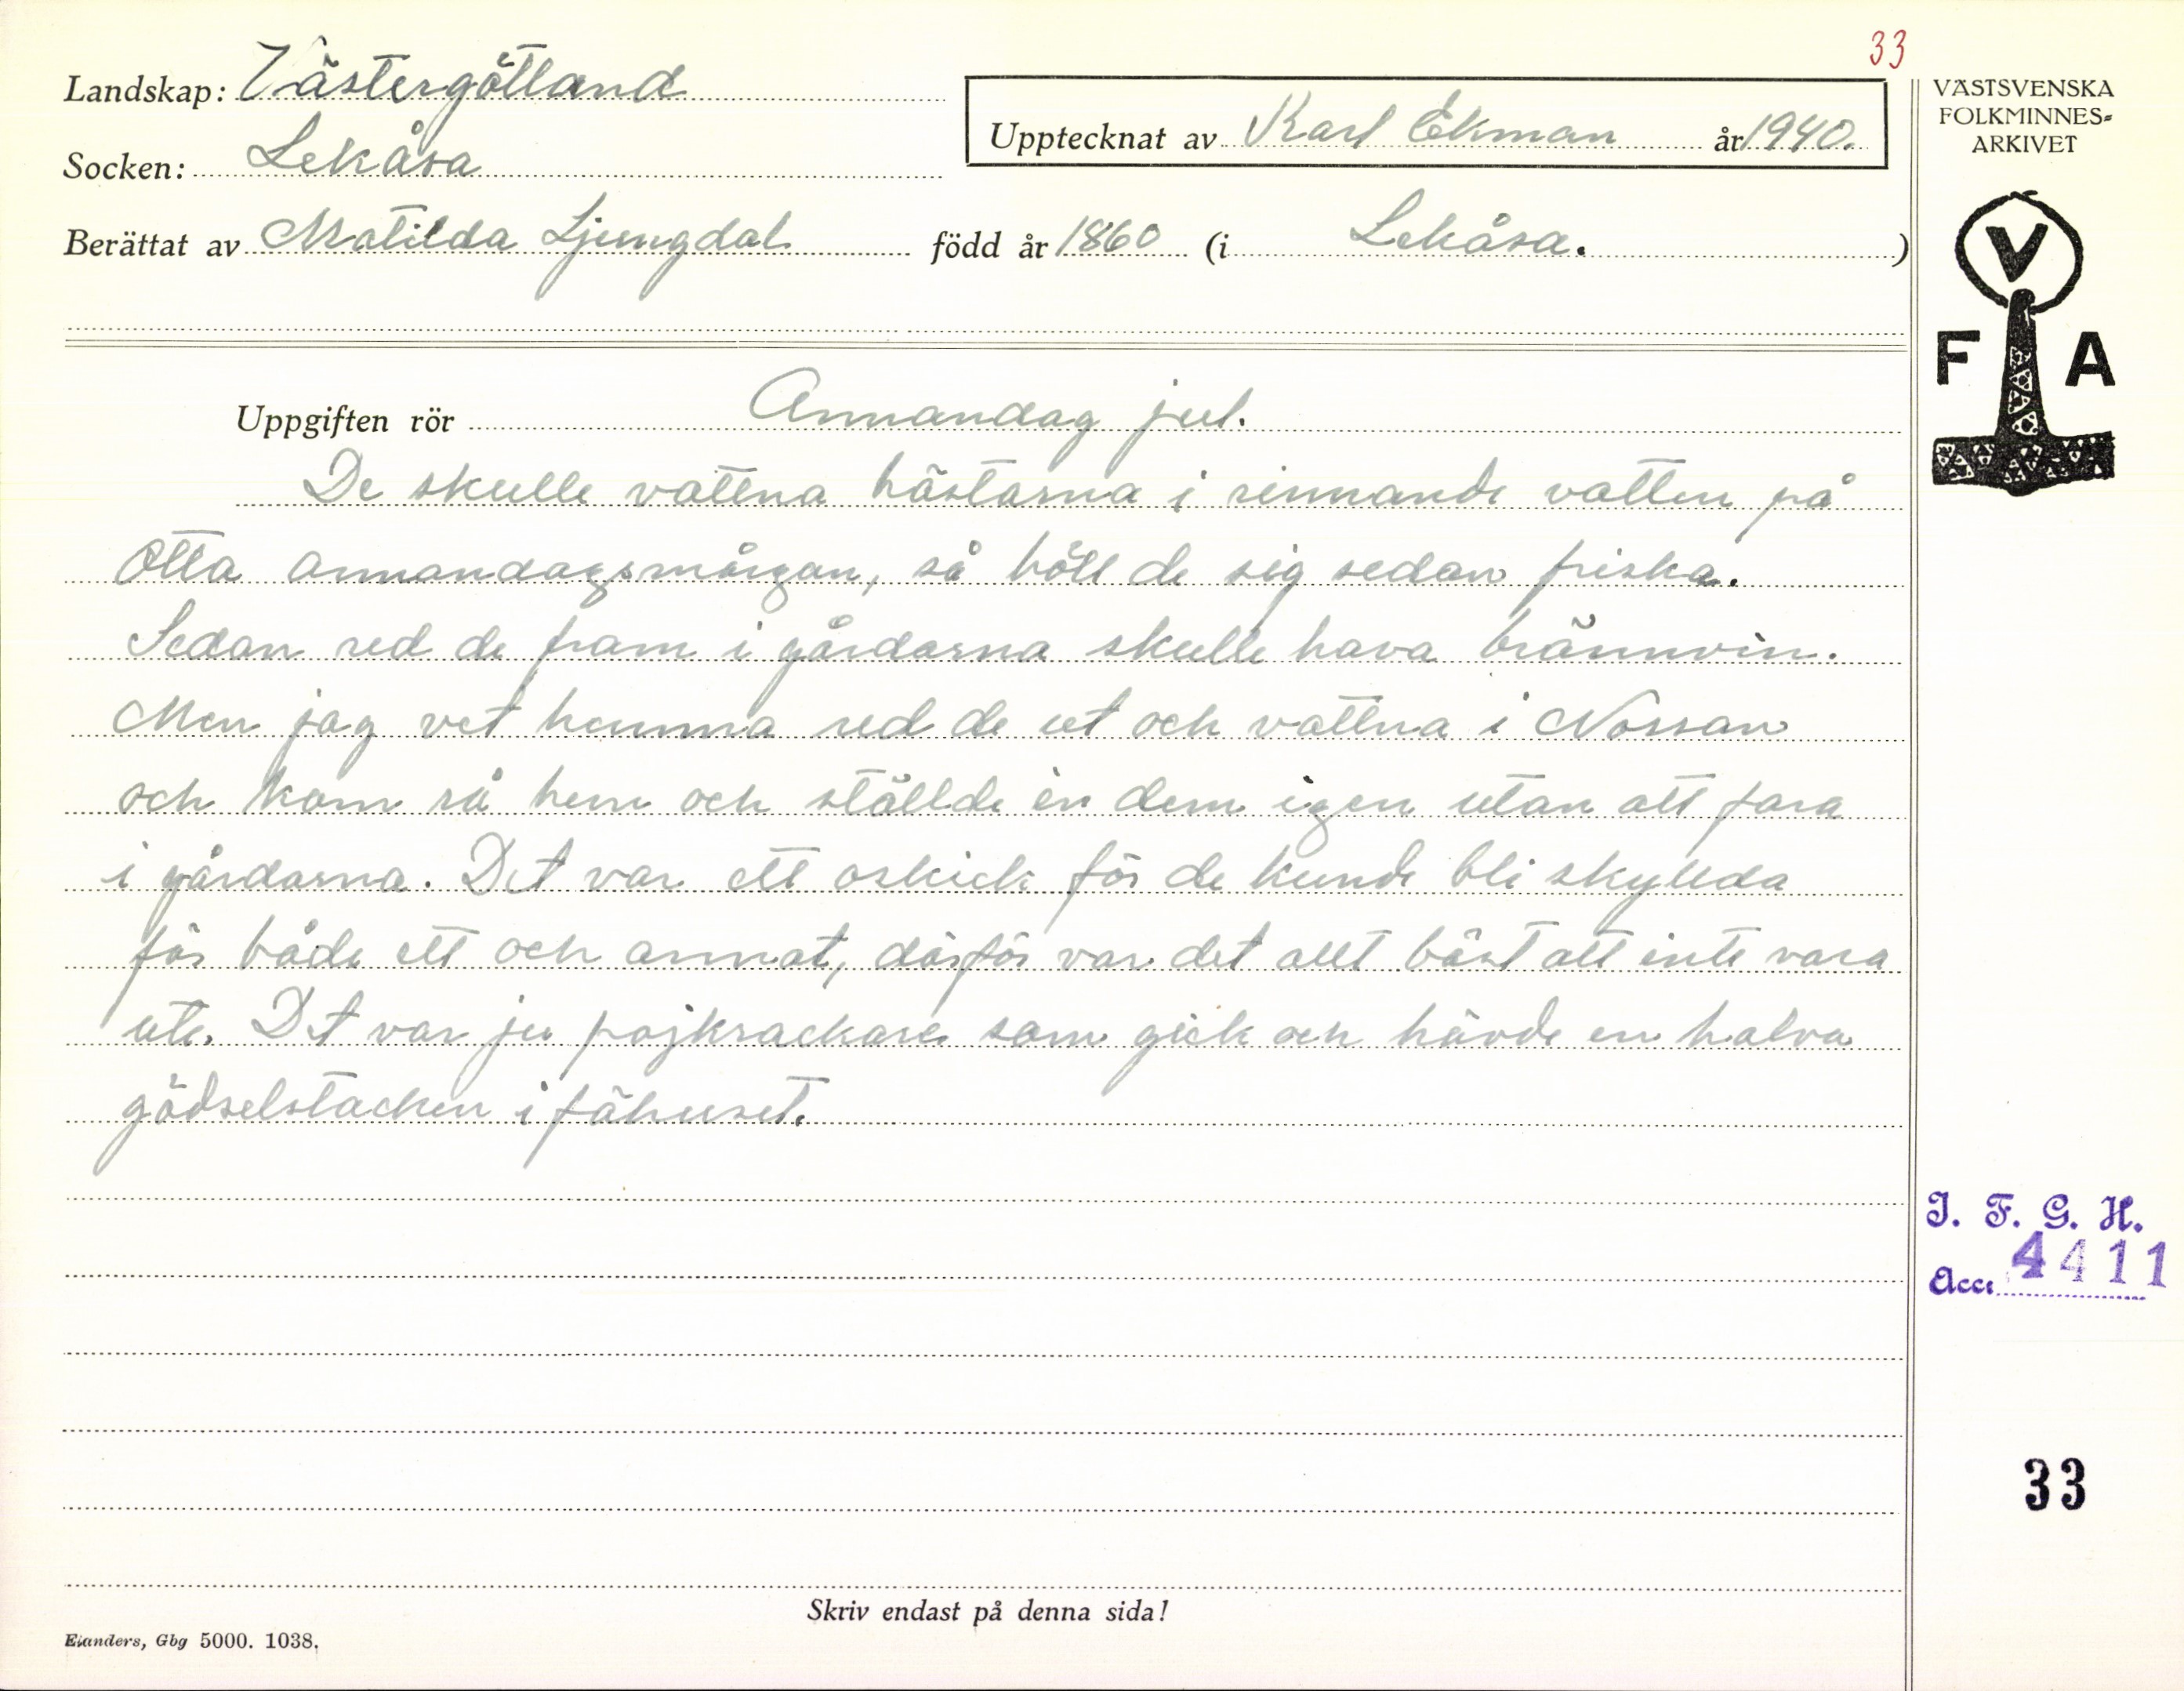 33
Landskap: Västergötland
Socken: Lekåsa
Upptecknat av Karl Ekman år 1940.
Berättat av Matilda Ljungdal född år 1860 (i Lekåsa. )
Uppgiften rör Annandag jul.
De skulle vattna hästarna i rinnande vatten på
otta annandagsmårgan, så höll de sig sedan friska.
Sedan red de fram i gårdarna skulle hava brännvin.
Men jag vet hemma red de ut och vattna i Nossan
och kom så hem och ställde in dem igen utan att fara
i gårdarna. Det var ett oskick för de kunde bli skyllda
för både ett och annat, därför var det allt bäst att inte vara
ute. Det var ju pojkrackare som gick och hävde en halva
gödselstacken i fähuset.
Skriv endast på denna sida!
Elanders, Gbg 5000. 1038.
VÄSTSVENSKA
FOLKMINNES=
ARKIVET
V
F A
I. F. G. H.
Acc. 4411
33